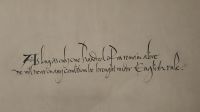 As long as one Hundred of us remain alive
we will never on any conditions be brought under English rule.